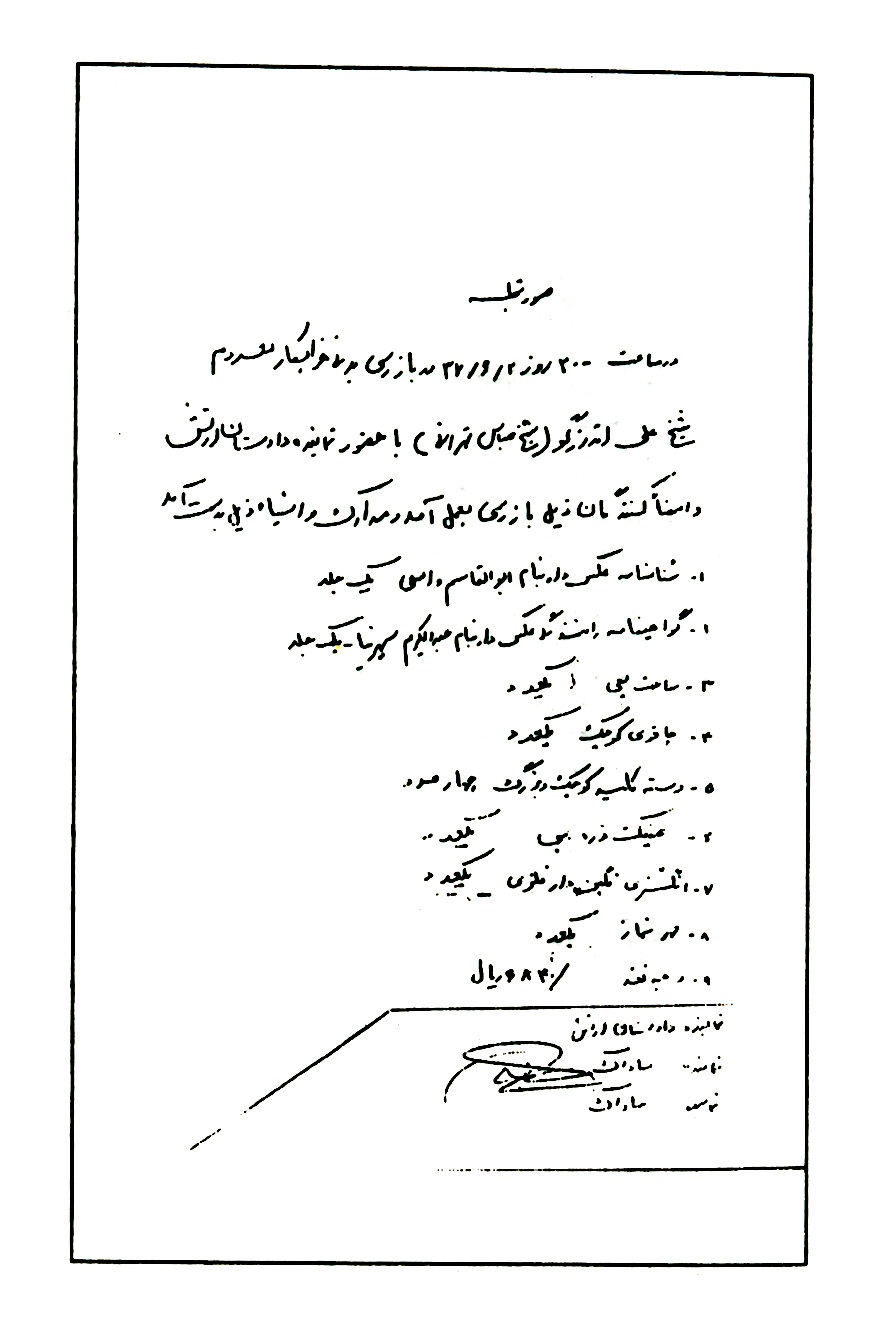 صورتجلسه
در ساعت ۲۰۰۰ روز ۳۷/۶/۲ در بازرسی بدنی خرابکار معدوم
شیخ علی اندرزگو (شیخ عباس تهرانی) با حضور نماینده دادستان ارتش
و امضاء کنندگان ذیل بازرسی بعمل آمد و مدارک و اشیاء ذیل بدست آمد
۱- شناسنامه عکس دار بنام ابوالقاسم واسعی یک جلد
۱- گواهینامه رانندگی عکس دار بنام عبدالکریم سپهرنیا - یک جلد
۳- ساعت مچی یکعدد
۴- چاقوی کوچک یکعدد
۵- دسته کلید کوچک و بزرگ چهار عدد
۶- عینک ذره بینی یکعدد
۷- انگشتری نگین دار فلزی یکعدد
۸- مهر نماز یکعدد
۹- وجه نقد ریال
نماینده دادستانی ارتش
نماینده ساواک
نماینده ساواک